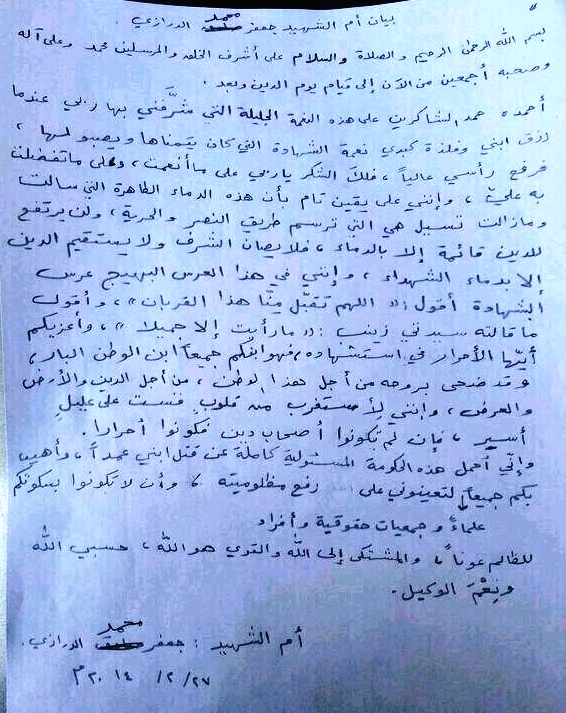 بيان أم الشهيد جعفر محمد الدرازي .
بسم الله الرحمن الرحيم والصلاة والسلام على أشرف الخلق والمرسلين محمد وعلى آله
وصحبه أجمعين من الآن إلى قيام يوم الدين وبعد .
أحمده حمد الشاكرين على هذه النعمة الجليلة التي شرّفني بها ربي عندما
رزق ابني وفلذة كبدي نعمة الشهادة التي كان يتمناها ويصبو لها ،
فرفع رأسي عالياً ، فلك الشكر ياربي على ما أنعمت ، وعلى ما تفضلت
به عليّ ، وإنني على يقين تام بأن هذه الدماء الطاهرة التي سالت
ومازالت تسيل هي التي ترسم طريق النصر والحرية ، ولن يرتفع
للدين قائمة إلا بالدماء ، فلا يصان الشرف ولا يستقيم الدين
إلا بدماء الشهداء ، وإنني في هذا العرس البهيج عرس
الشهادة أقول : « اللهم تقبّل منّا هذا القربان » ، وأقول
ما قالته سيدتي زينب : « ما رأيت إلا جميلا » ، وأعزيكم
أيّها الأحرار في استشهاده ، فهو ابنكم جميعاً ابن الوطن البار ،
وقد ضحى بروحه من أجل هذا الوطن ، من أجل الدين والأرض
والعرض ، وإنني لأستغرب من قلوبٍ قست على عليلٍ
أسير ، فإن لم تكونوا أصحاب دين فكونوا أحرارا .
وإنّي أحمل هذه الحكومة المسئولية كاملة عن قتل ابني عمداً ، وأهيب
بكم جميعاً لتعينوني على رفع مظلوميته ، وأن لا تكونوا بسكوتكم
علماءً وجمعيات حقوقية وأفراد
للظالم عوناً ، والمشتكى إلى الله والقوي هو الله ، حسبي الله
ونِعْمَ الوكيل .
أم الشهيد : جعفر محمد الدرازي .
٢٧/ ٢/ ٢٠١٤ م